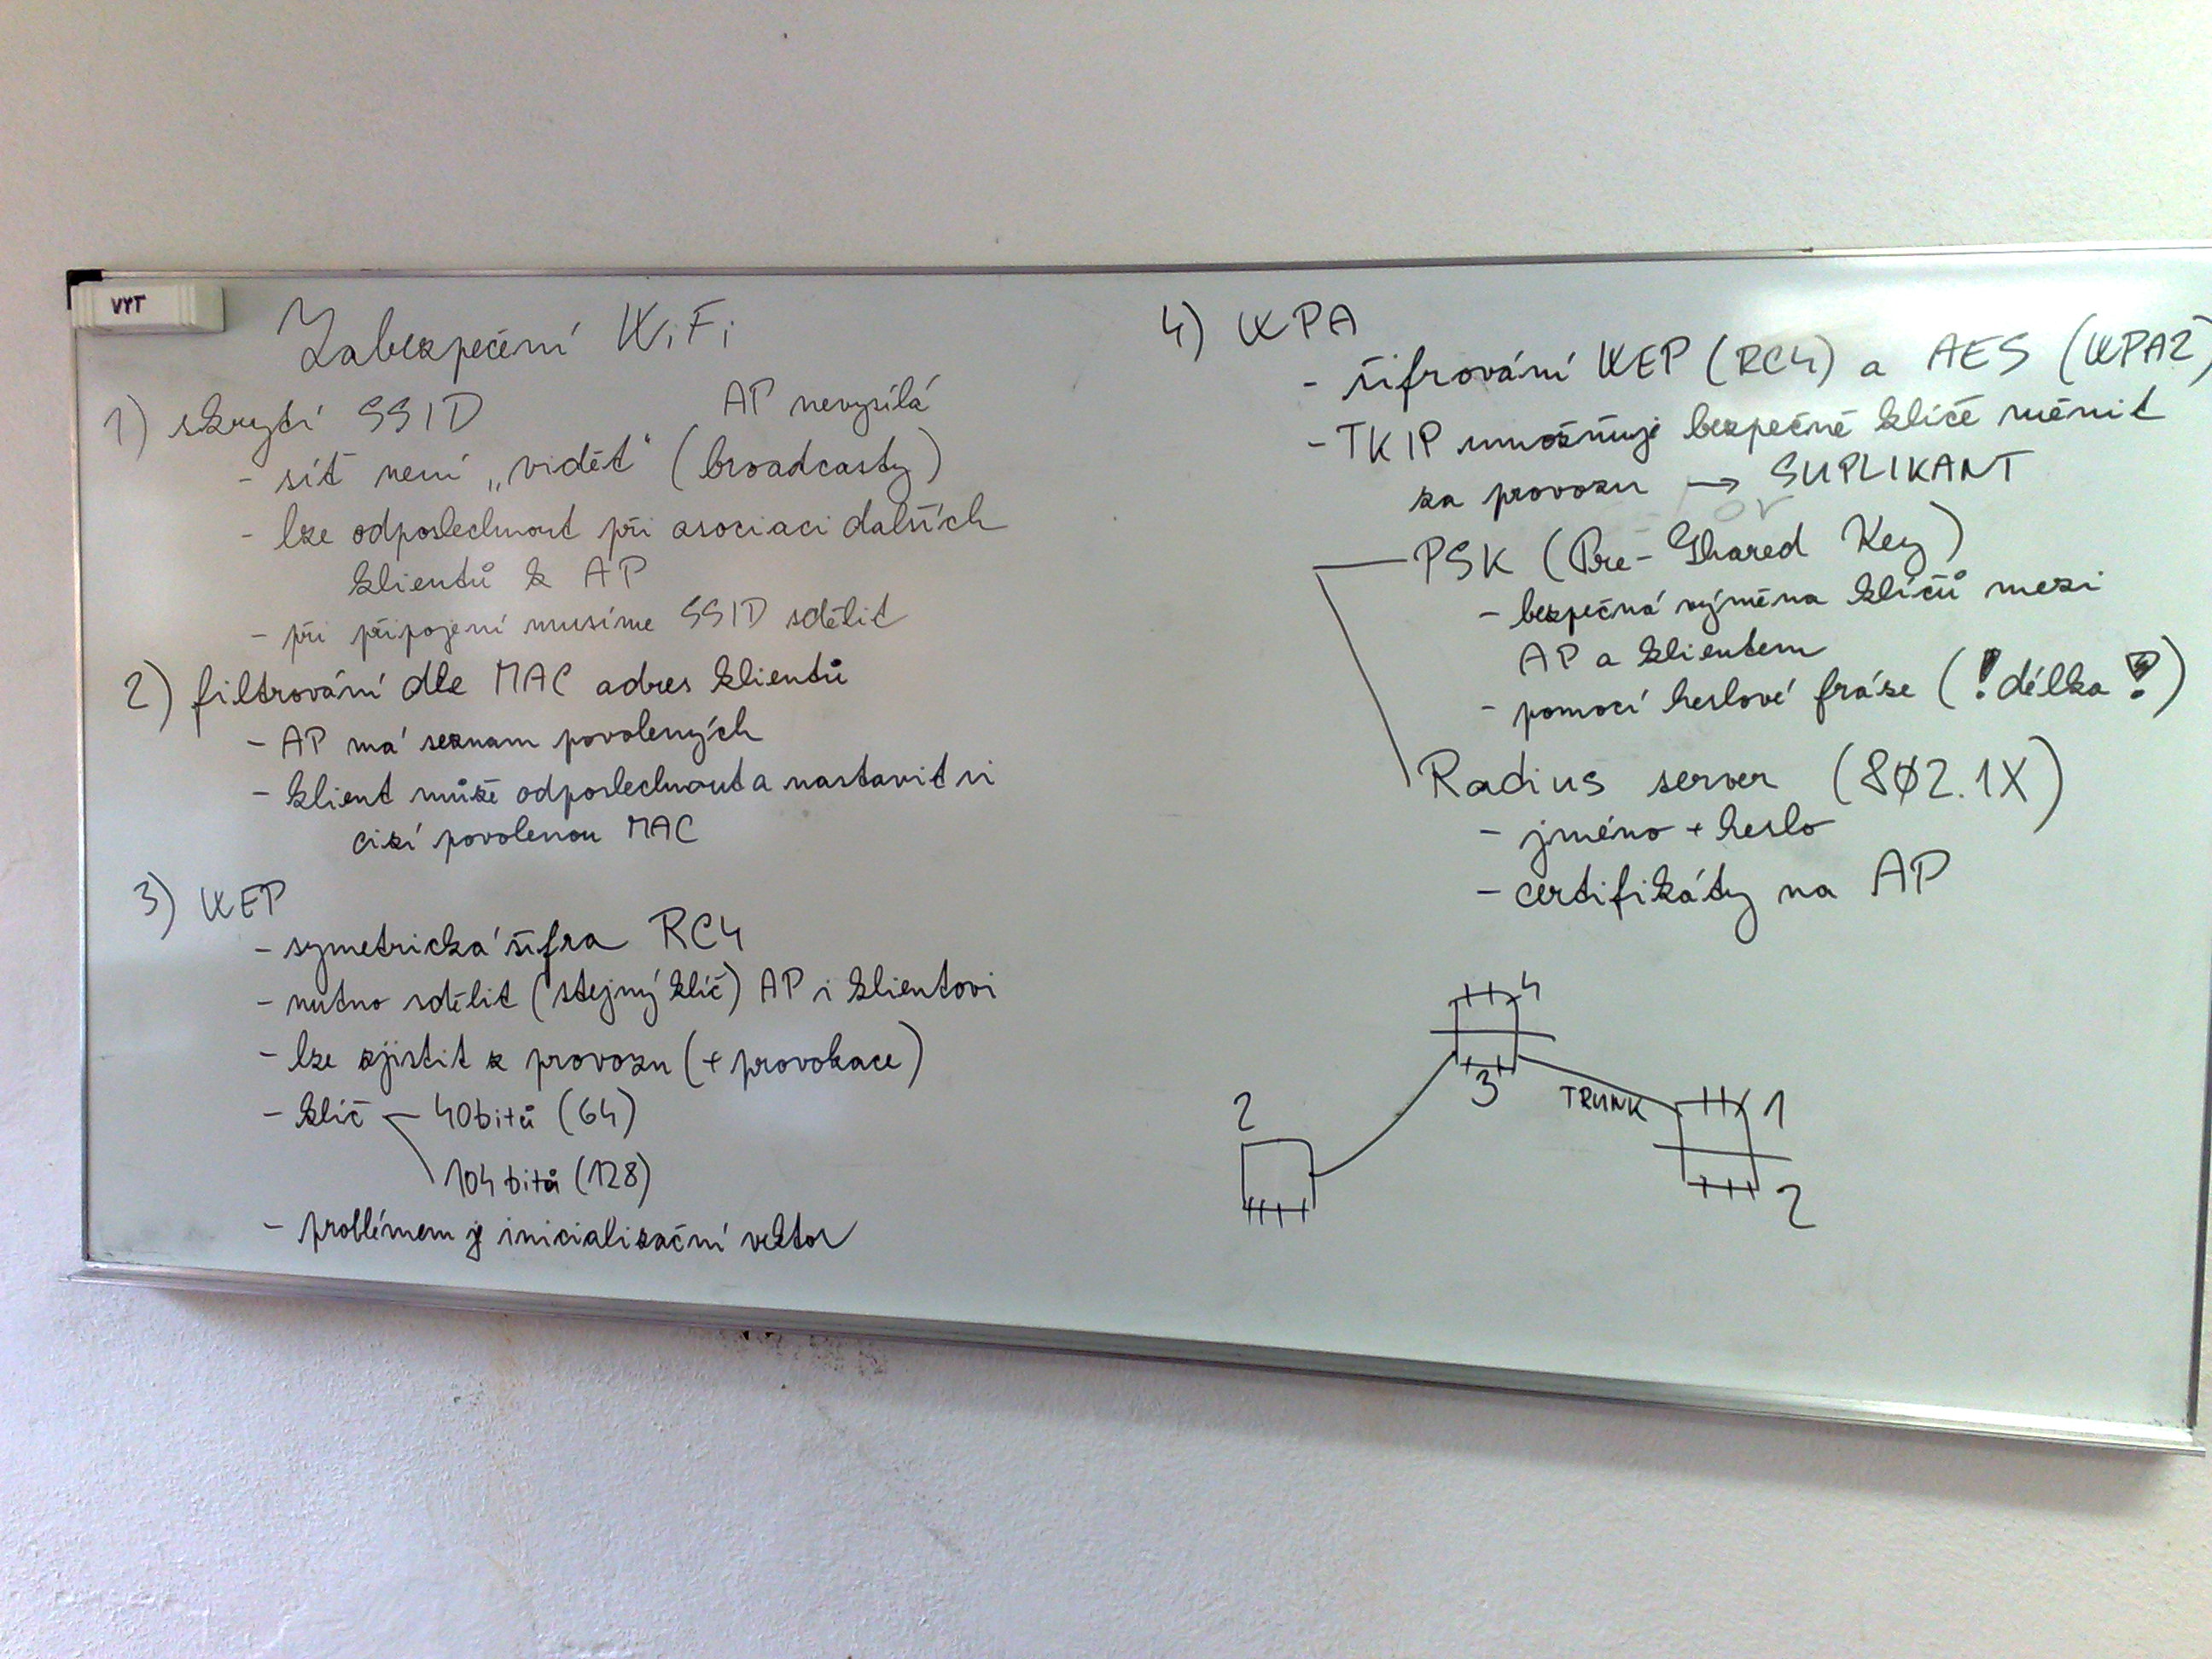 VYT
Zabezpečení WiFi
1) skrytí SSID
AP nevysílá
- síť není „vidět“ (broadcasty)
- lze odposlechnout při asociaci dalších
klientů k AP
- při připojení musíme SSID sdělit
2) filtrování dle MAC adres klientů
- AP má seznam povolených
- klient může odposlechnout a nastavit si
cizí povolenou MAC
3) WEP
- symetrická šifra RC4
- nutno sdělit (stejný klíč) AP i klientovi
- lze zjistit z provozu (+ provokace)
- klíč - 40bitů (64)
104 bitů (128)
- problémem je inicializační vektor
4) WPA
- šifrování WEP (RC4) a AES (WPA2)
- TKIP umožňuje bezpečně klíče měnit
za provozu → SUPLIKANT
PSK (Pre-Shared Key)
- bezpečná výměna klíčů mezi
AP a klientem
- pomocí heslové fráze (! délka !)
Radius server (802.1X)
- jméno + heslo
- certifikáty na AP
4
3
TRUNK
2
1
2